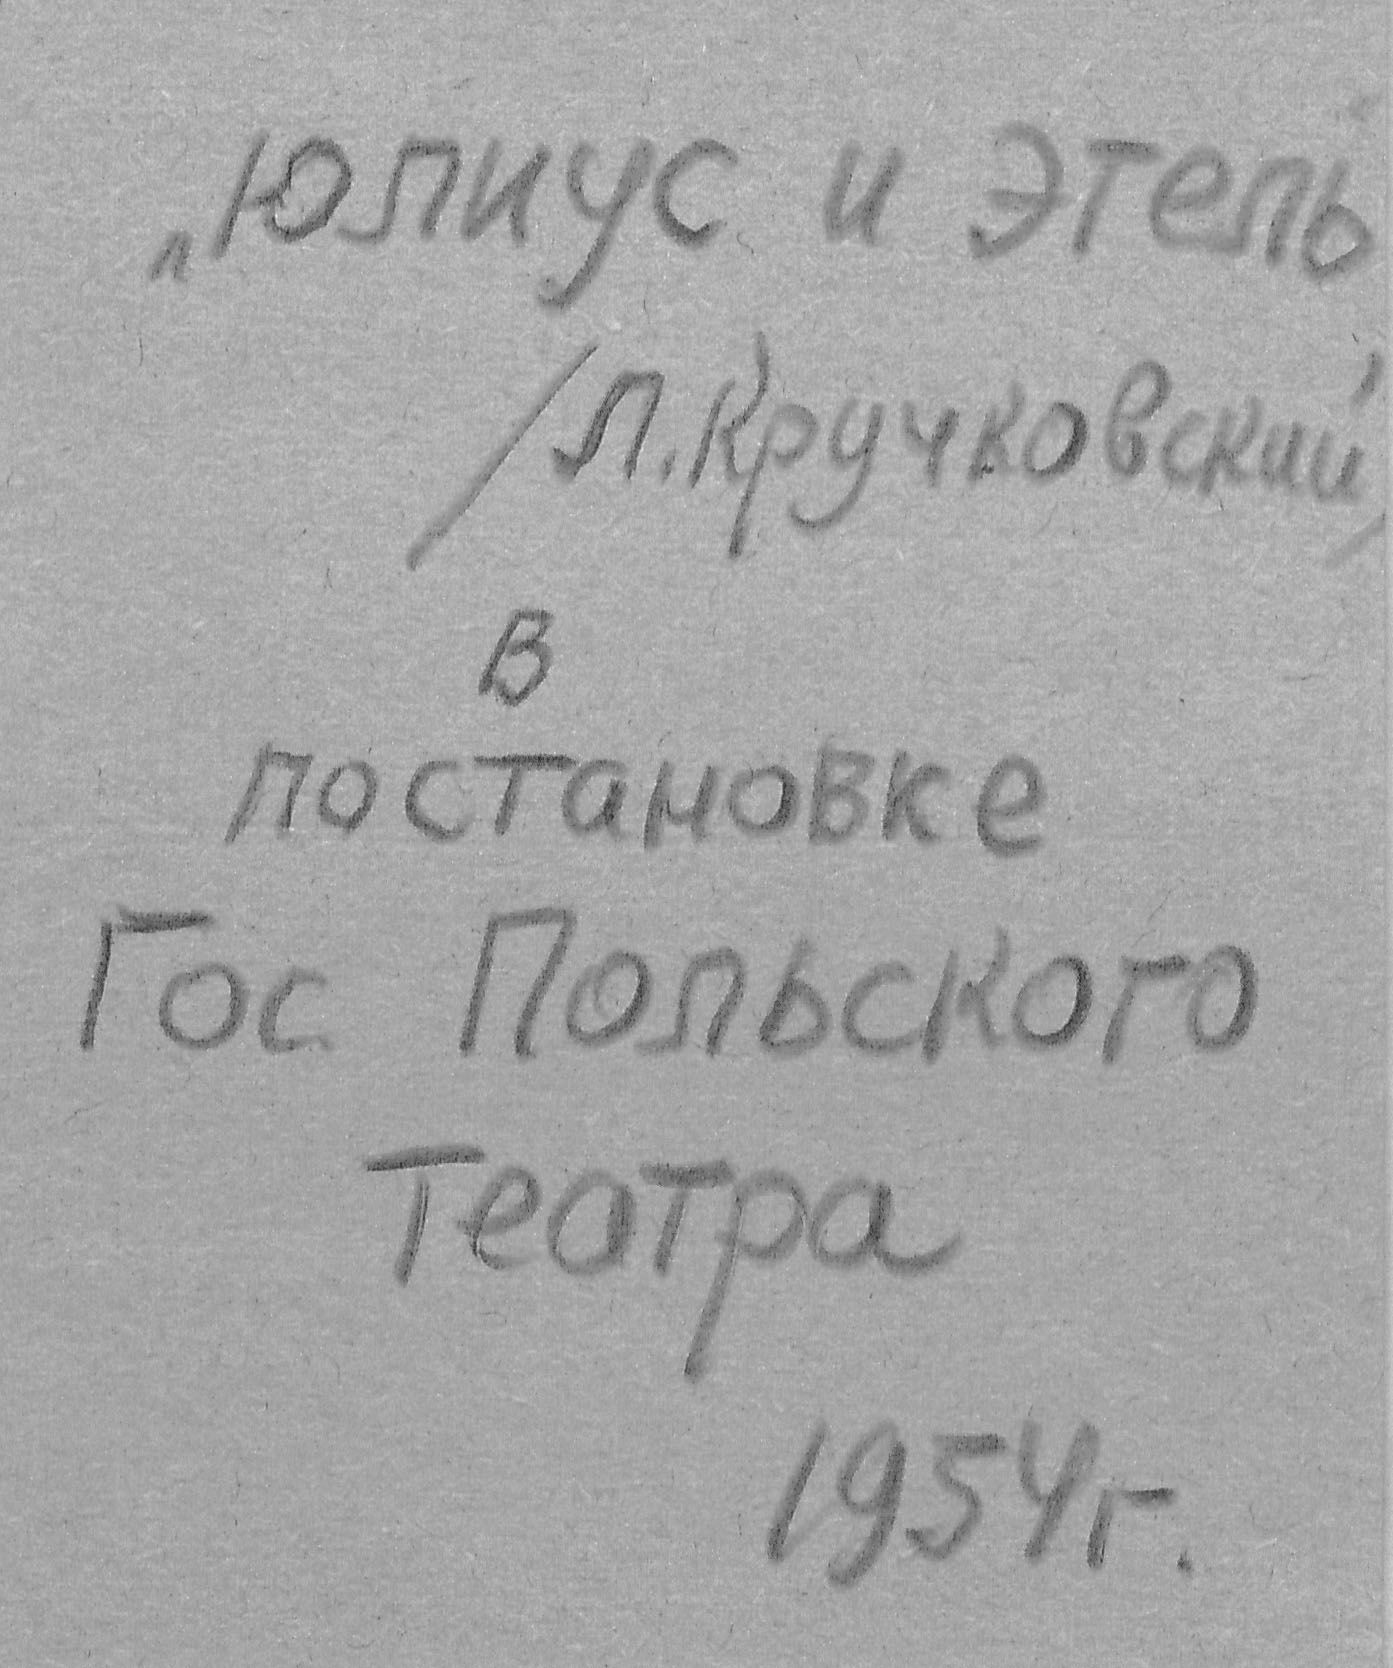 „Юлиус и Этель"
/Л. Кручковский/
в
постановке
Гос Польского
театра
1954 г.